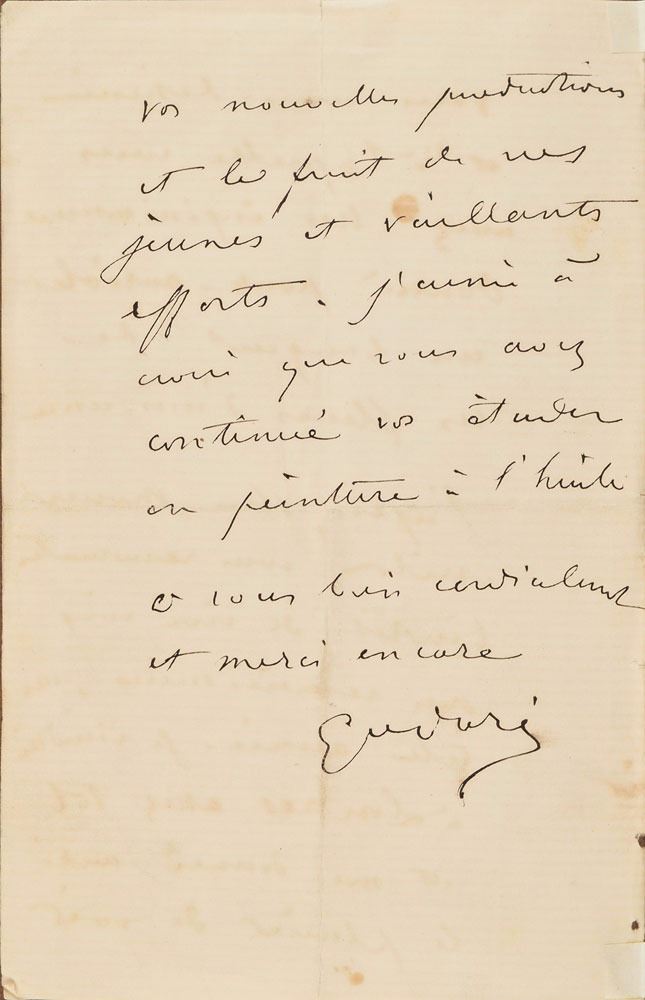 vos nouvelles productions
et le fruit de nes
jeunes et vaillants
efforts. j'aime à
croire que vous avez
continué vos études
en peinture à l'huile
à vous bien cordialement
et merci encore